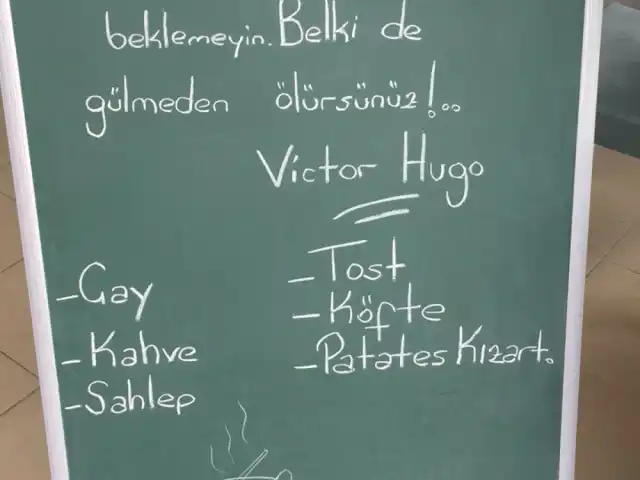 beklemeyin. Belki de
gülmeden ölürsünüz!..
Victor Hugo
- Çay
- Kahve
- Sahlep
- Tost
- Köfte
- Patates Kızart.